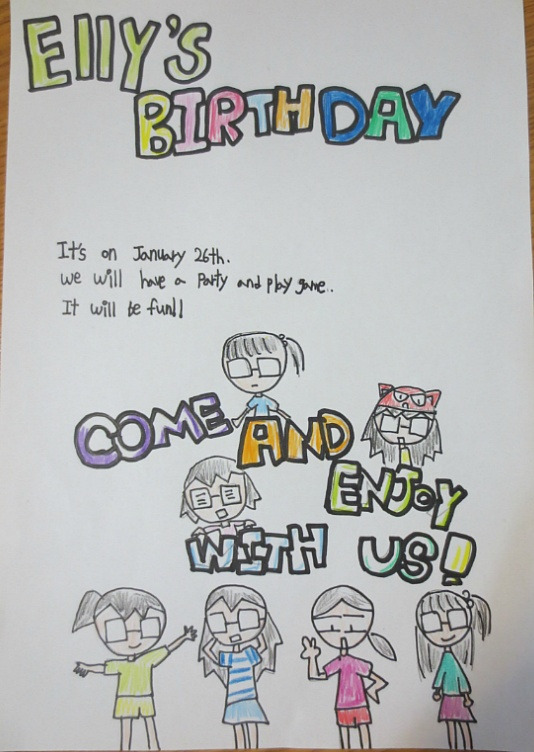 Elly's
BIRTHDAY
It's on January 26th.
we will have a Party and play game..
It will be fun!!
COME
AND
ENJOY
WITH US!